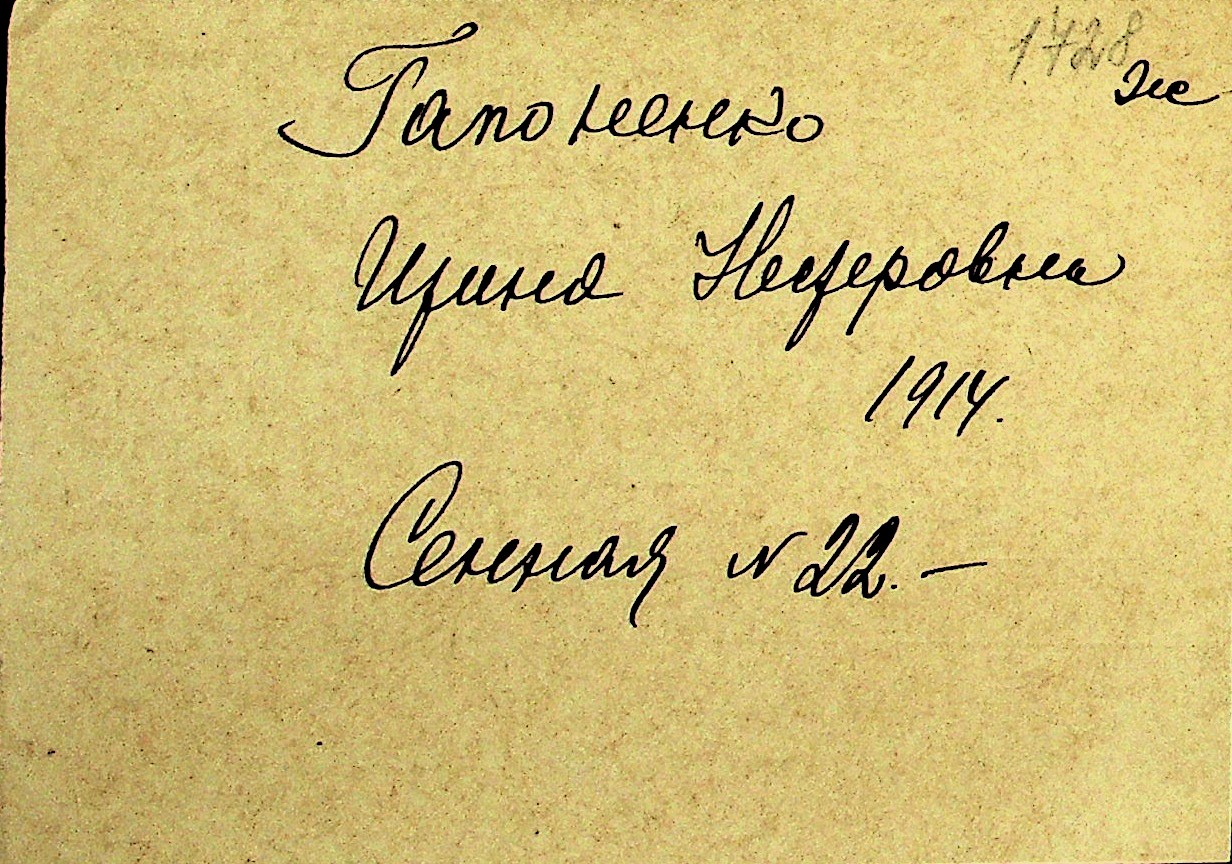 1.728
Гапоненко
Ирина Несторовна
1914.
Сенная № 22. —